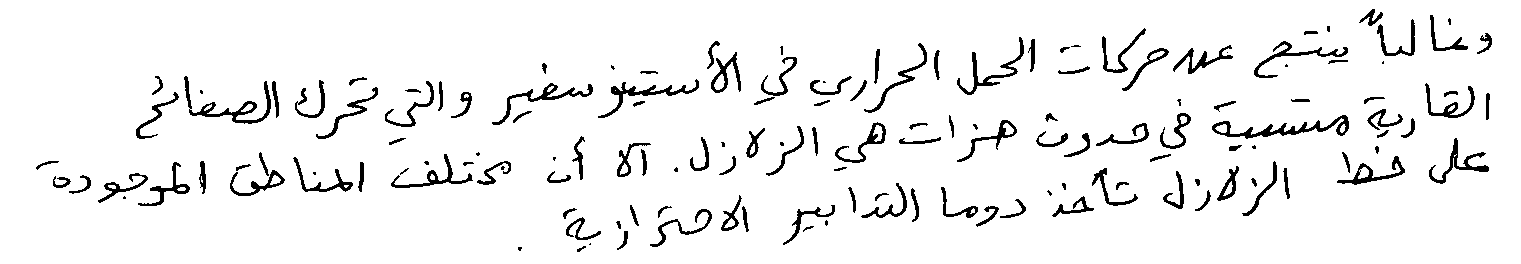 وغالباً ينتج عن حركات الحمل الحراري في الأستينوسفير والتي تحرك الصفائح
القارية متسببة في حدوث هزات هي الزلازل. آلا أن مختلف المناطق الموجودة
على خط الزلازل تأخذ دوما التدابير الاحترازية .